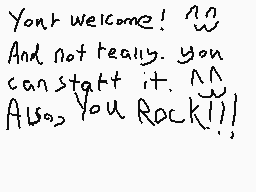 Your welcome! ^^
And not really. you
can start it. ^^
Also, You Rock!!!